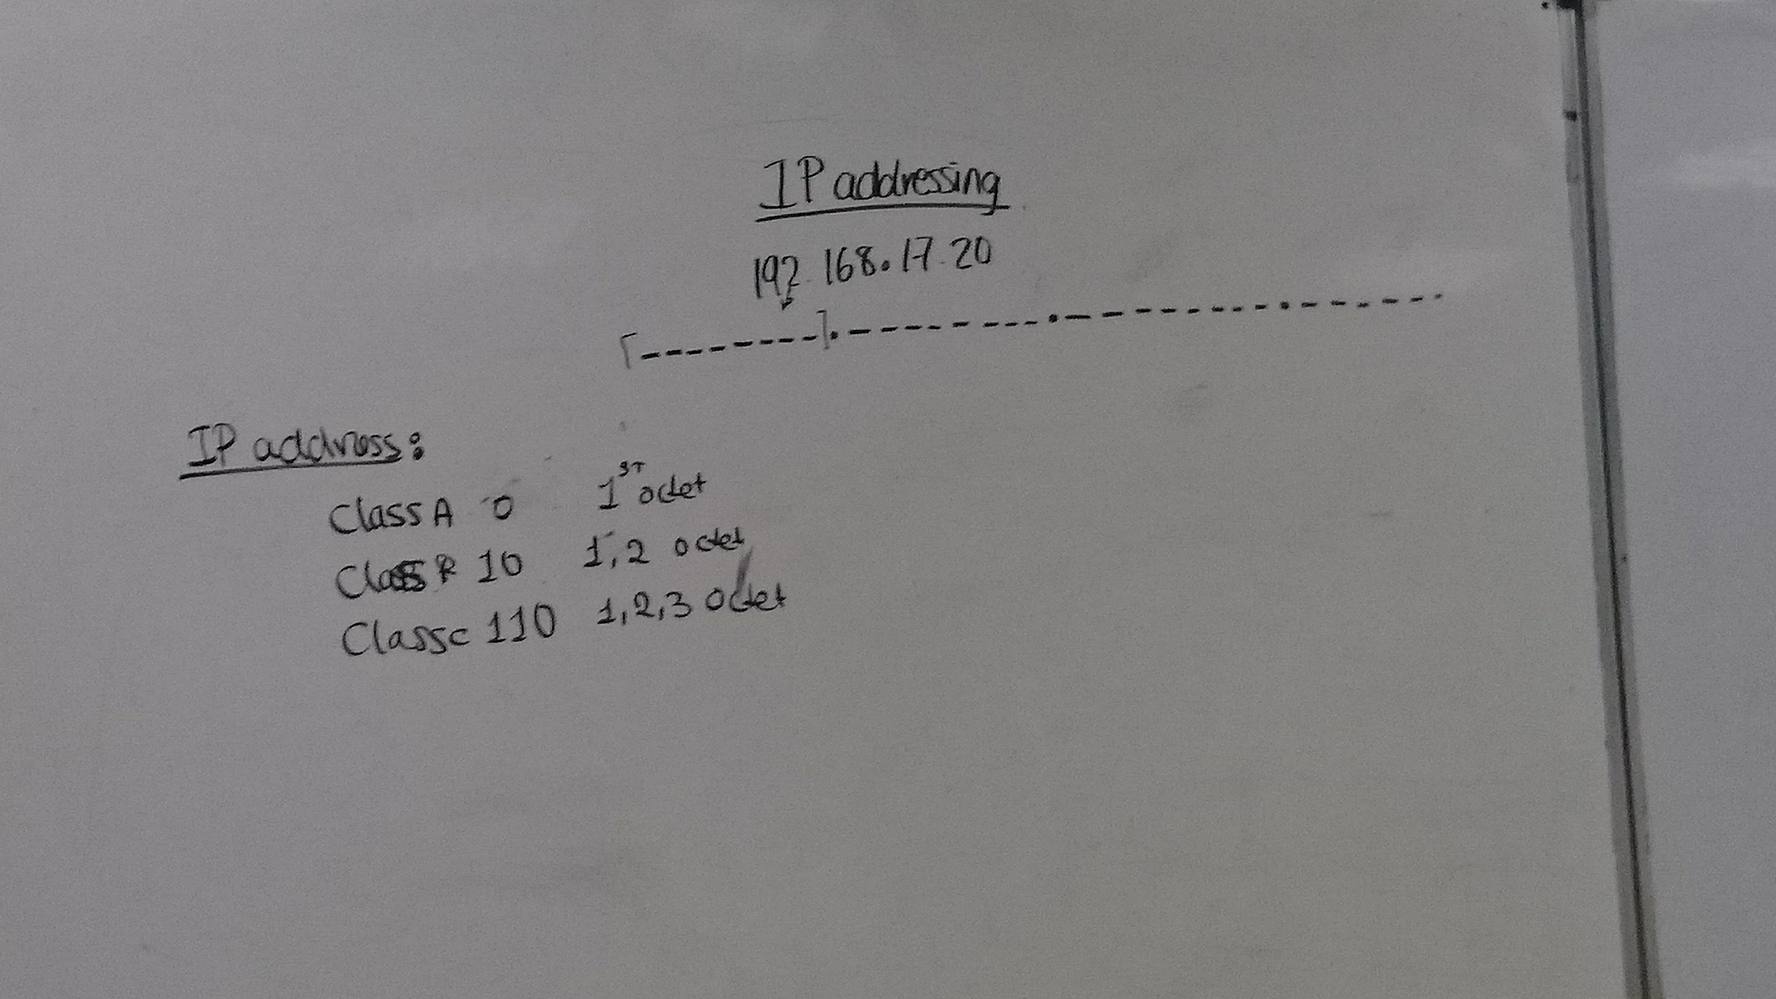 IP addressing
192.168.17.20
IP address:
Class A 0 1ST octet
Class B 10 1,2 octet
Class c 110 1,2,3 octet